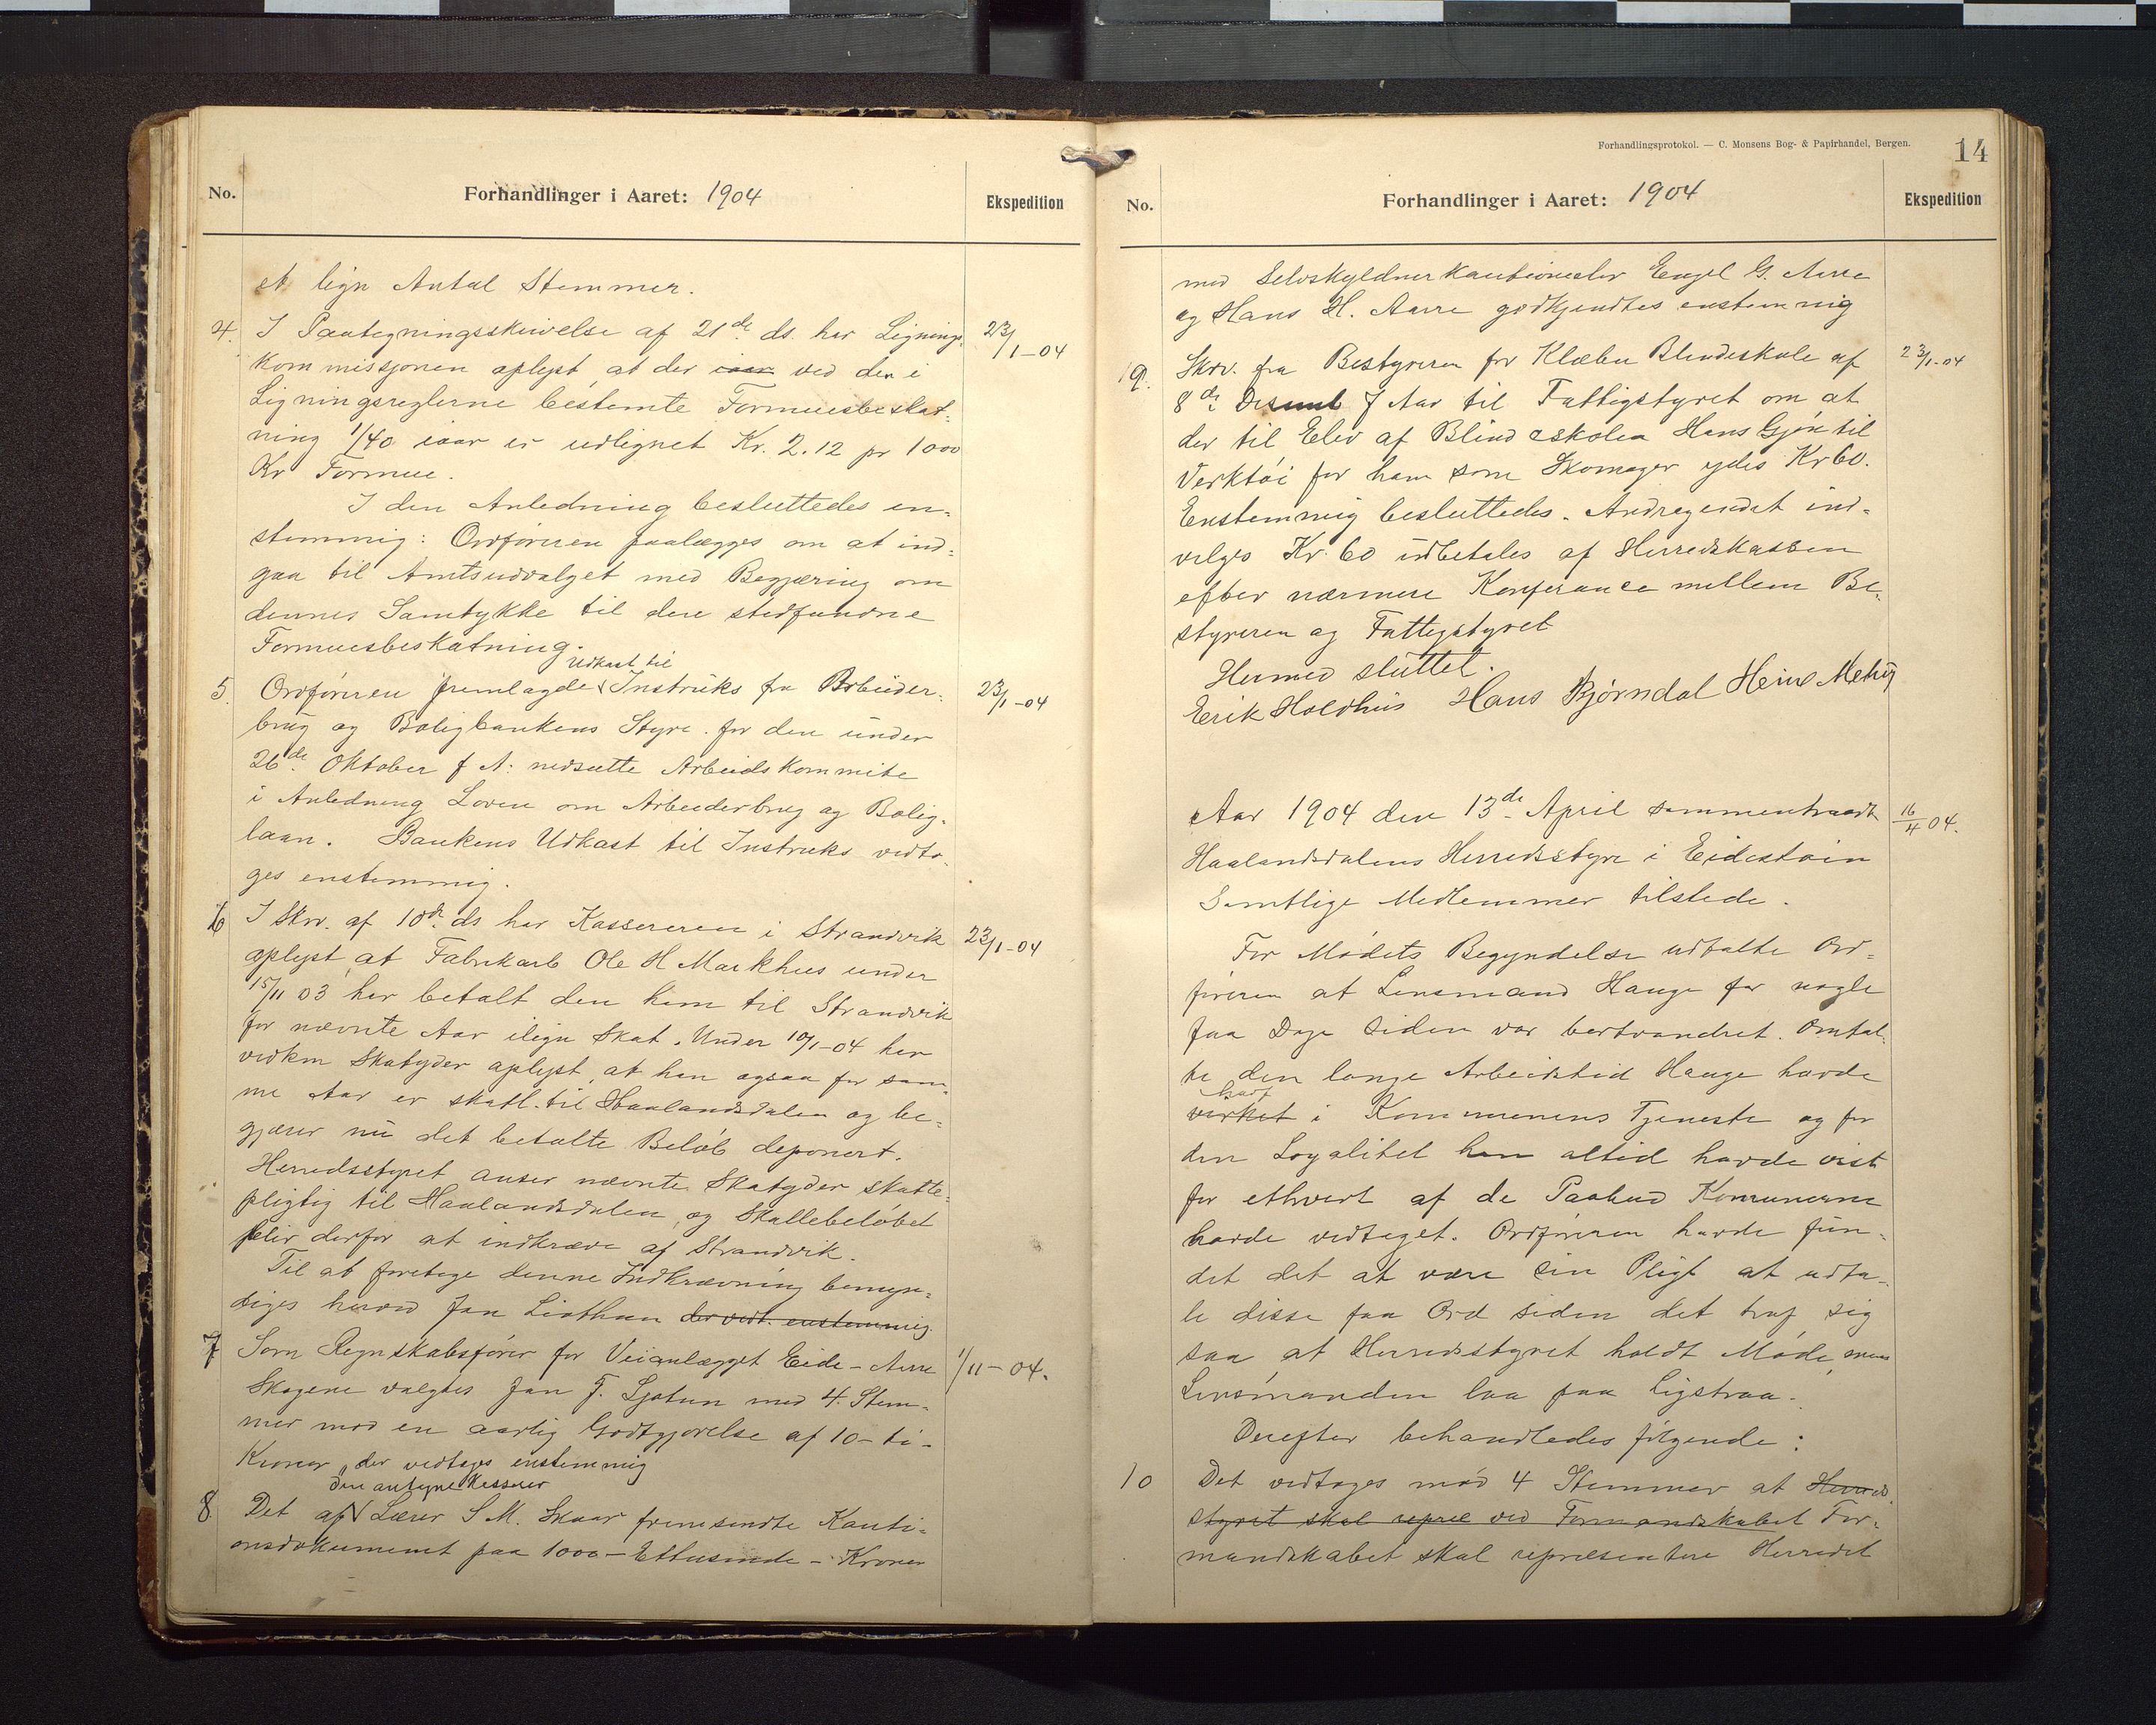 No. Forhandlinger i Aaret: 1904 Ekspedition
et lign Antal Stemmer.
4. I Paategningsskrivelse af 21de ds. har Lignings- 23/1-04
kommissjonen oplyst, at der iaar ved den i
Ligningsreglerne bestemte Formuesbeskat-
ning 1/40 iaar er udlignet Kr. 2.12 pr 1000
Kr Formue.
I den Anledning besluttedes en-
stemmig: Ordføreren paalægges om at ind-
gaa til Amtsudvalget med Begjæring om
dennes Samtykke til den stedfundne
Formuesbeskatning.
Udkast til
5. Ordføreren fremlagde Instruks fra Arbeider- 23/1-04
brug og Boligbankens Styre for den under
26de Oktober f A. nedsatte Arbeidskommite
i Anledning Loven om Arbeiderbrug og Bolig-
laan. Bankens Udkast til Instruks vedto-
ges enstemmig.
6 I Skr. af 10de ds har Kassereren i Strandvik 23/1-04
oplyst, at Fabrikarb Ole H Markhus under
15/11 03 har betalt den ham til Strandvik
for nævnte Aar ilign Skat. Under 10/1-04 har
vedkm Skatyder oplyst, at han ogsaa for sam-
me Aar er skatl. til Haalandsdalen og be-
gjærer nu det betalte Beløb deponert.
Herredsstyret anser nævnte Skatyder skatte-
pligtig til Haalandsdalen, og Skattebeløbet
blir derfor at indkræve af Strandvik.
Til at foretage denne Indkrævning bemyn-
diges herved Jan Liothun der vedt. enstemmig
7 Som Regnskabsfører for Veianlægget Eide-Aarre 1/11-04.
Skogene valgtes Jan J. Ljotun med 4. Stem-
mer mod en aarlig Godtgjørelse af 10-ti-
Kroner, der vedtages enstemmig
den antagne Kasserer
8. Det af Lærer S M. Skaar fremsendte Kauti-
onsdokument paa 1000-Ettusinde-Kroner
Forhandlingsprotokol. — C. Monsens Bog- & Papirhandel, Bergen.
14
No. Forhandlinger i Aaret: 1904 Ekspedition
med Selvskyldnerkautionister Engel G. Aarre
og Hans H. Aarre godkjendtes enstemmig
9. Skr. fra Bestyreren for Klæbu Blindeskole af 23/1-04
8de Desemb f Aar til Fattigstyret om at
der til Elev af Blindeskolen Hans Gjøn til
Verktøi for ham som Skomager ydes Kr 60.
Enstemmig besluttedes. Andragendet ind-
vilges Kr. 60 udbetales af Herredskassen
efter nærmere Konferance mellem Be-
styreren og Fattigstyret
Hermed sluttet.
Erik Holdhus Hans Bjørndal Heine
Aar 1904 den 13de April sammentraadt 16/4 04.
Haalandsdalens Herredsstyre i Eidestøin
Samtlige Medlemmer tilstede.
Før Mødets Begyndelse udtalte Ord-
føreren at Lensmand Hauge for nogle
faa Dage siden var bortvandret. Omtal-
te den lange Arbeidstid Hauge havde
havt
virket i Kommunens Tjeneste og for
den Loyalitet han altid havde vist
for ethvert af de Paabud Komunerne
havde vedtaget. Ordføreren havde fun-
det det at være sin Pligt at udta-
le disse faa Ord siden det traf sig
saa at Herredsstyret holdt Møde, mens
Lensmanden laa paa Ligstraa.
Derefter behandledes følgende:
10 Det vedtoges mod 4 Stemmer at Herreds
styret skal repræ ved Formandskabet For-
mandskabet skal repræsentere Herredet